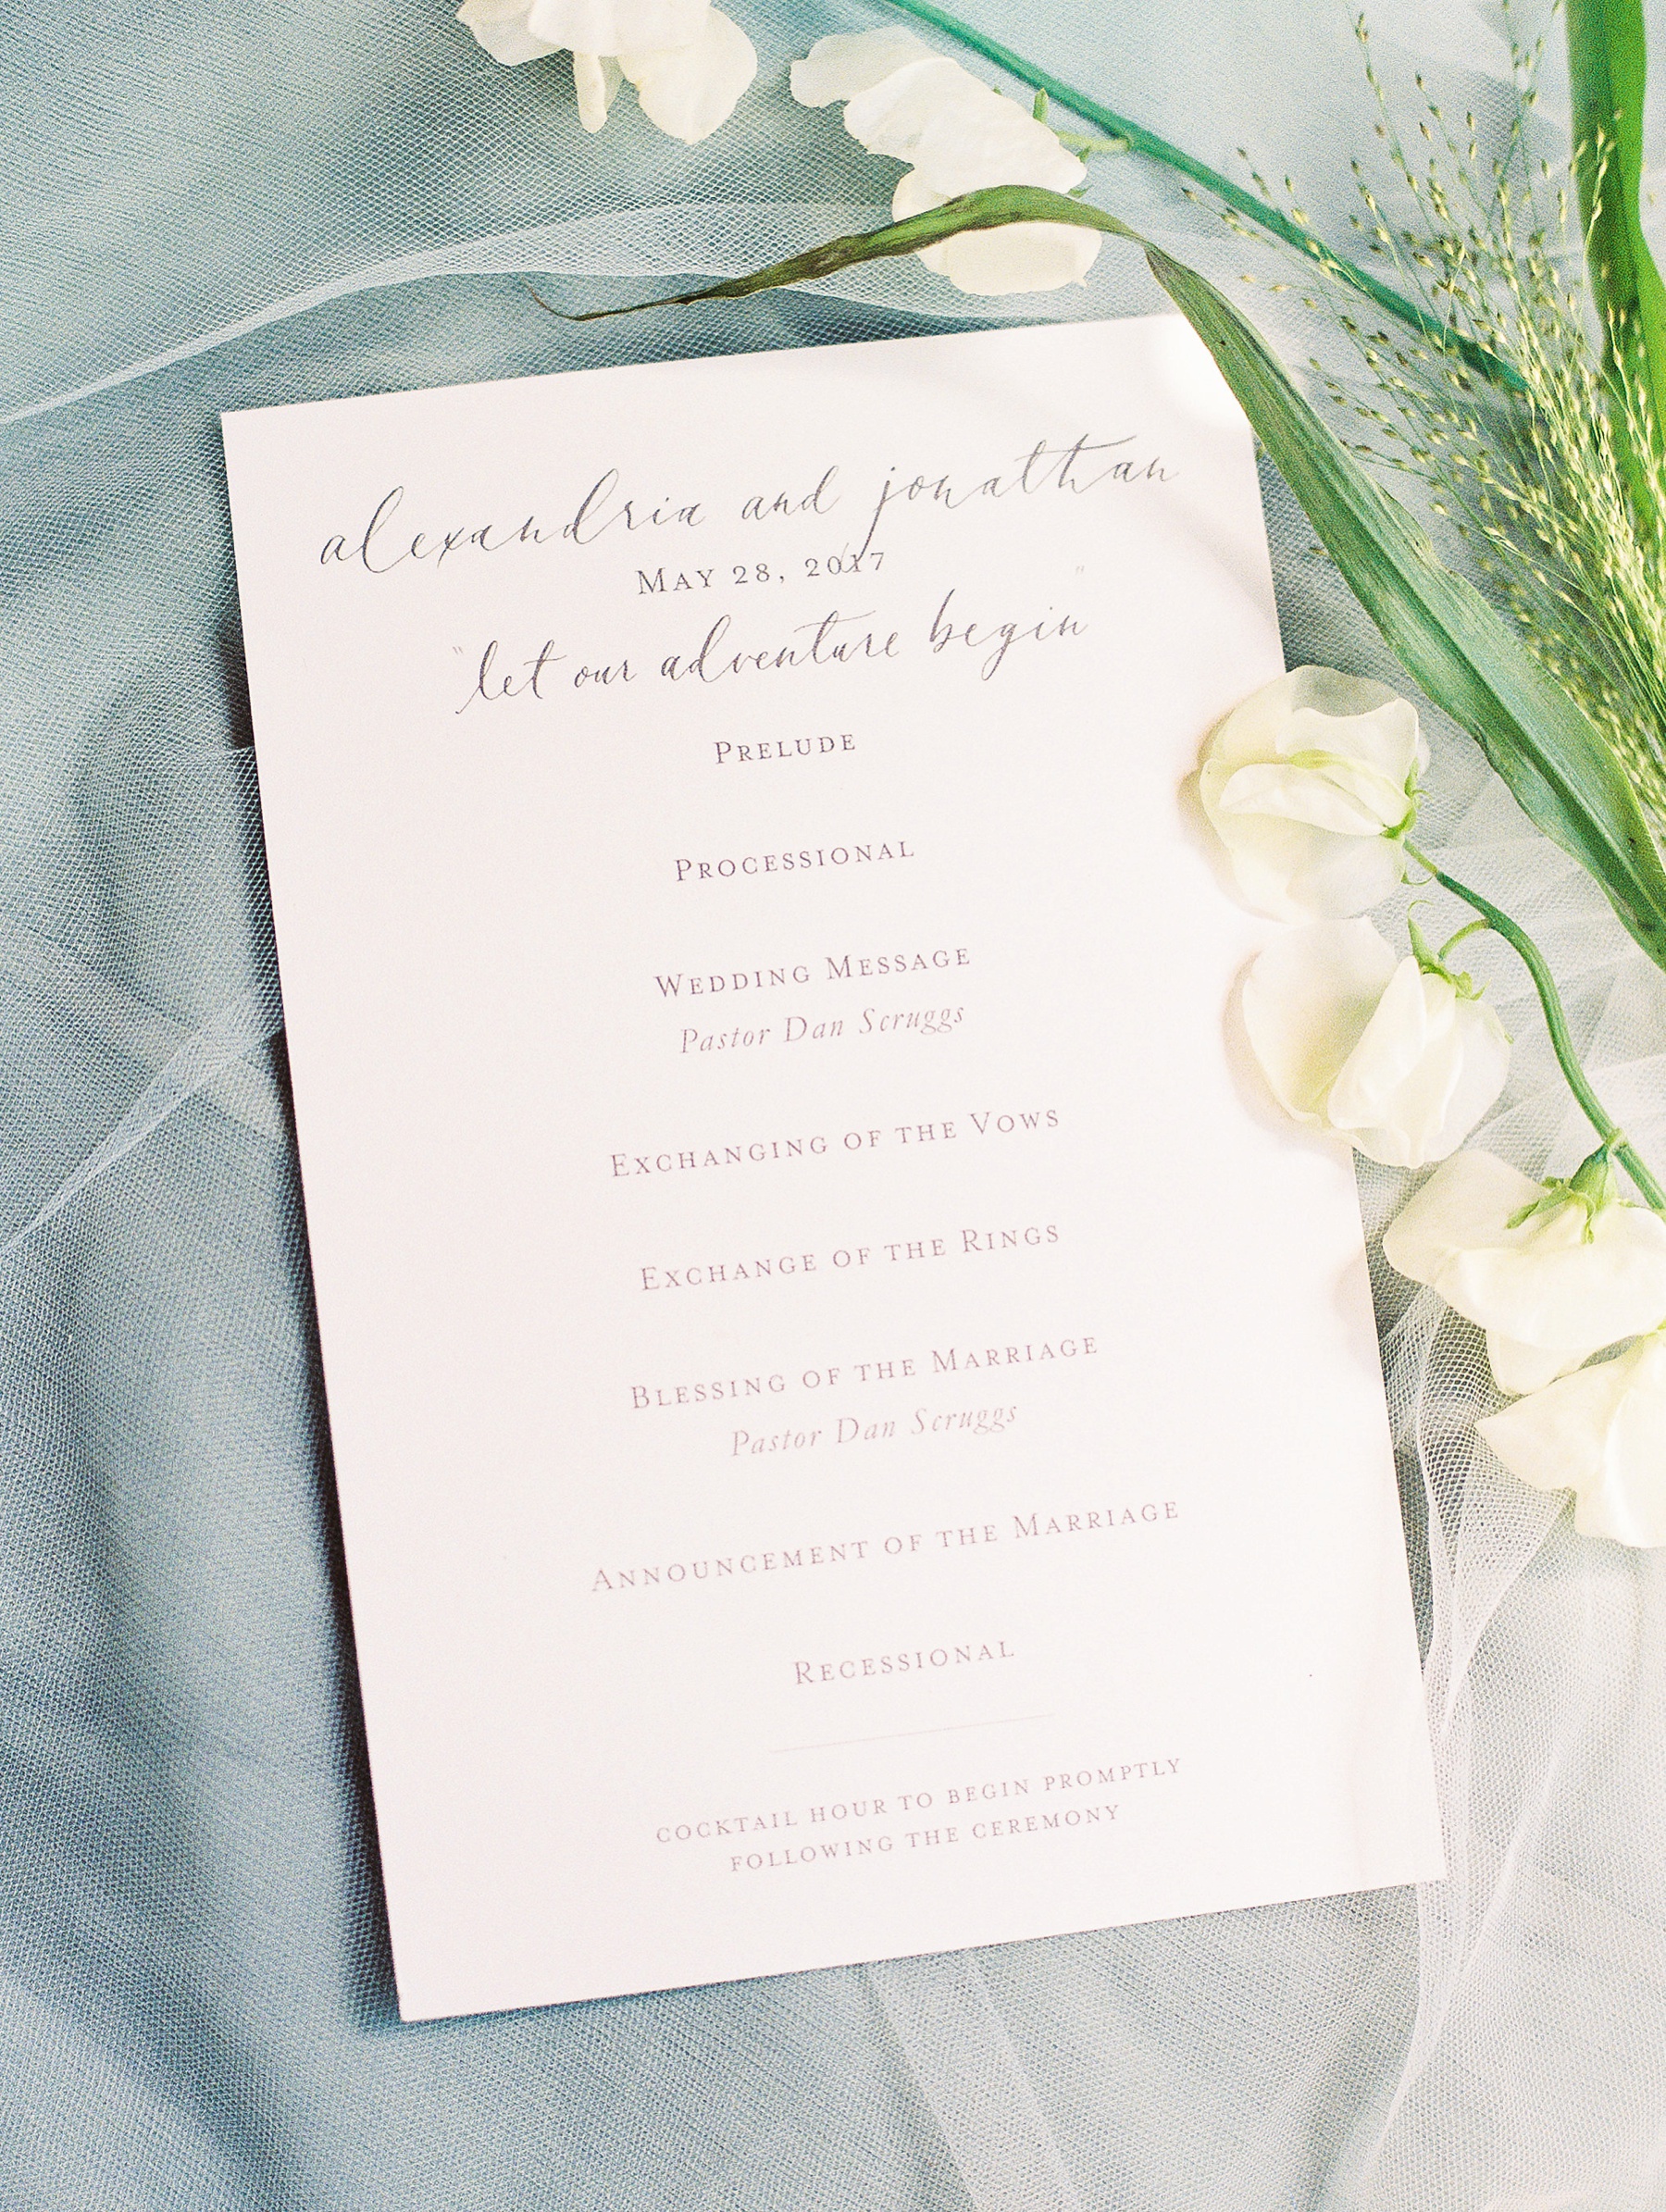 alexandria and jonathan
May 28, 2017
"let our adventure begin"
Prelude
Processional
Wedding Message
Pastor Dan Scruggs
Exchanging of the Vows
Exchange of the Rings
Blessing of the Marriage
Pastor Dan Scruggs
Announcement of the Marriage
Recessional
cocktail hour to begin promptly
following the ceremony